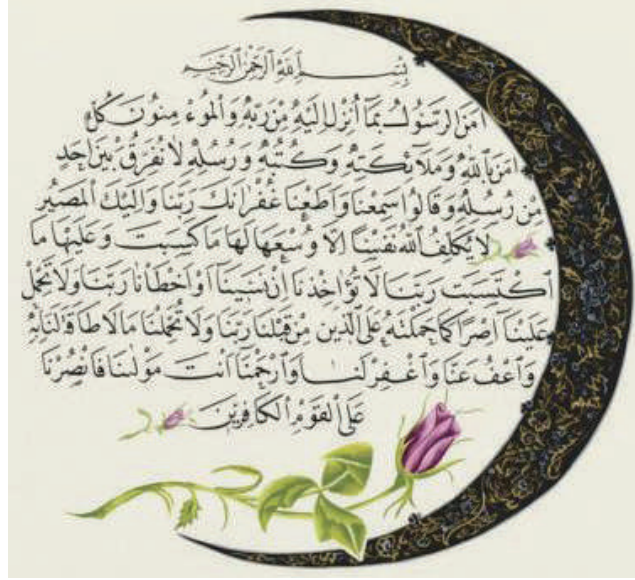 بِسْمِ ٱللَّهِ ٱلرَّحْمَٰنِ ٱلرَّحِيمِ
اٰمَنَ ٱلرَّسُولُ بِمَآ أُنْزِلَ إِلَيْهِ مِنْ رَبِّهِ وَٱلْمُؤْمِنُونَ كُلٌّ
اٰمَنَ بِٱللَّهِ وَمَلَآئِكَتِهِ وَكُتُبِهِ وَرُسُلِهِ لَا نُفَرِّقُ بَيْنَ اَحَدٍ
مِنْ رُسُلِهِ وَقَالُوا سَمِعْنَا وَاَطَعْنَا غُفْرَانَكَ رَبَّنَا وَاِلَيْكَ ٱلْمَصِيرُ
لَا يُكَلِّفُ ٱللَّهُ نَفْسًا اِلَّا وُسْعَهَا لَهَا مَا كَسَبَتْ وَعَلَيْهَا مَا
ٱكْتَسَبَتْ رَبَّنَا لَا تُؤَاخِذْنَا اِنْ نَسِينَا اَوْ اَخْطَأْنَا رَبَّنَا وَلَا تَحْمِلْ
عَلَيْنَا اِصْرًا كَمَا حَمَلْتَهُ عَلَى ٱلَّذِينَ مِنْ قَبْلِنَا رَبَّنَا وَلَا تُحَمِّلْنَا مَا لَا طَاقَةَ لَنَا بِهِ
وَٱعْفُ عَنَّا وَٱغْفِرْ لَنَا وَٱرْحَمْنَا اَنْتَ مَوْلٰىنَا فَٱنْصُرْنَا
عَلَى ٱلْقَوْمِ ٱلْكَافِرِينَ